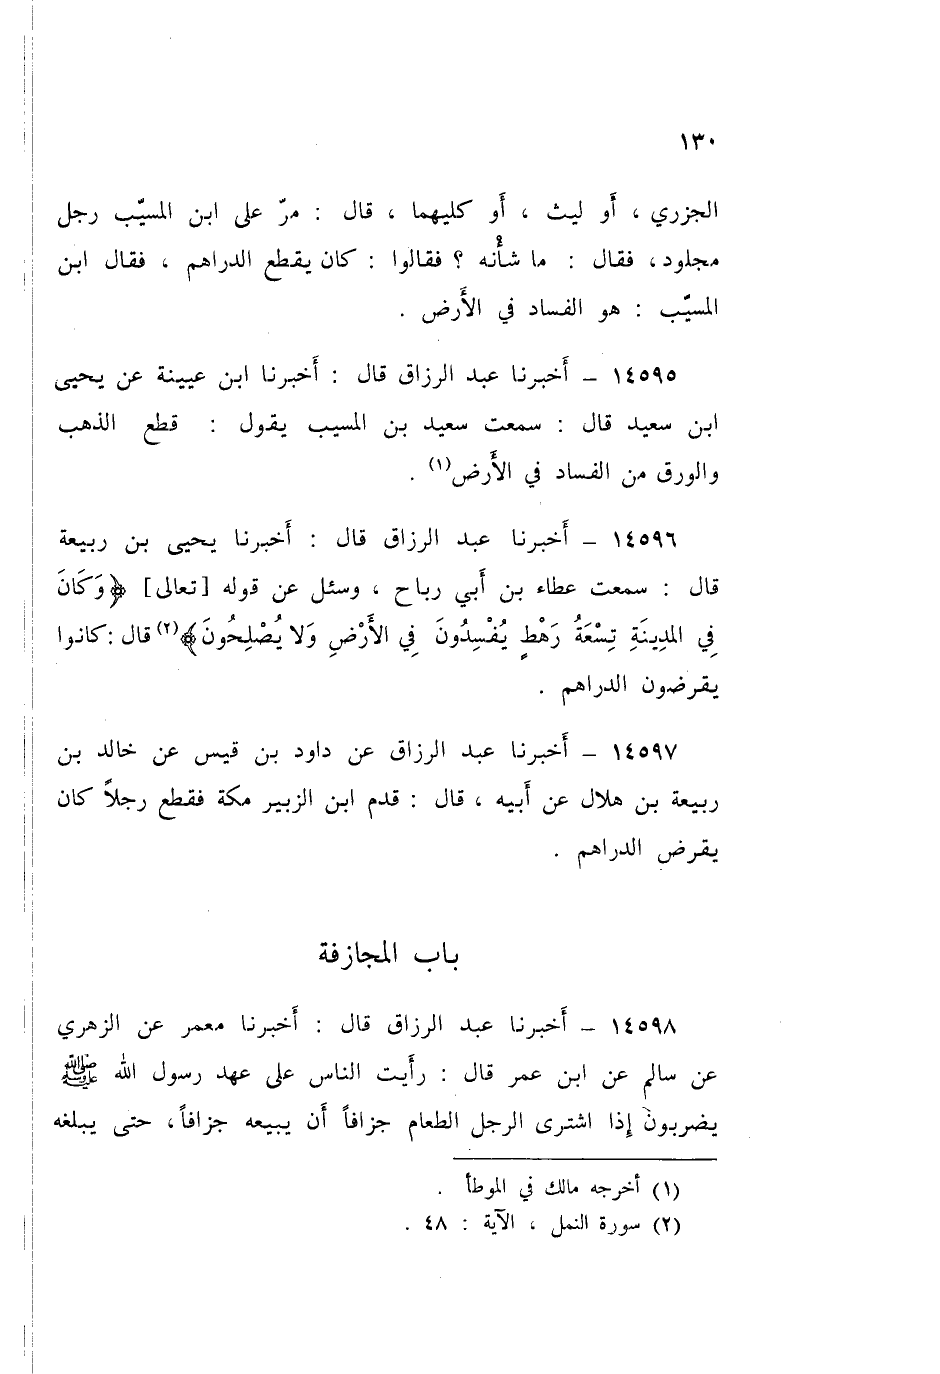 ١٣٠
الجزري ، أَو ليث ، أَو كليهما ، قال : مرّ على ابن المسيّب رجل
مجلود، فقال : ما شأْنه ؟ فقالوا : كان يقطع الدراهم ، فقال ابن
المسيّب : هو الفساد في الأَرض .
١٤٥٩٥ – أَخبرنا عبد الرزاق قال : أَخبرنا ابن عيينة عن يحيى
ابن سعيد قال : سمعت سعيد بن المسيب يقول : قطع الذهب
والورق من الفساد في الأَرض(١) .
١٤٥٩٦ – أَخبرنا عبد الرزاق قال : أَخبرنا يحيى بن ربيعة
قال : سمعت عطاء بن أَبي رباح ، وسئل عن قوله [تعالى] ﴿وَكَانَ
فِي المدِينَةِ تِسْعَةُ رَهْطٍ يُفْسِدُونَ فِي الأَرْضِ وَلا يُصْلِحُونَ﴾(٢) قال : كانوا
يقرضون الدراهم .
١٤٥٩٧ – أَخبرنا عبد الرزاق عن داود بن قيس عن خالد بن
ربيعة بن هلال عن أَبيه ، قال : قدم ابن الزبير مكة فقطع رجلاً كان
يقرض الدراهم .
باب المجازفة
١٤٥٩٨ – أَخبرنا عبد الرزاق قال : أَخبرنا معمر عن الزهري
عن سالم عن ابن عمر قال : رأَيت الناس على عهد رسول الله ﷺ
يضربون إِذا اشترى الرجل الطعام جزافاً أَن يبيعه جزافاً، حتى يبلغه
(١) أخرجه مالك في الموطأ .
(٢) سورة النمل ، الآية : ٤٨ .